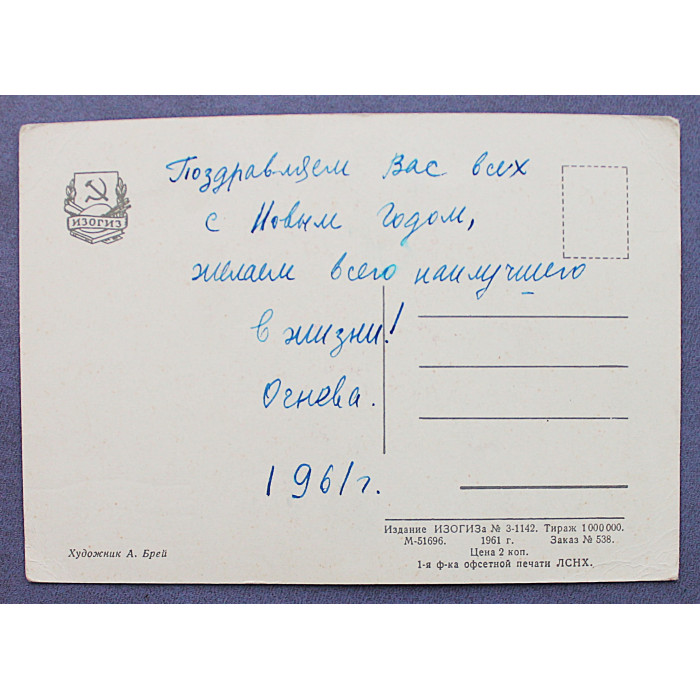 ИЗОГИЗ
Поздравляем Вас всех
с Новым Годом,
желаем всего наилучшего
в жизни!
Огнева.
1961г.
Художник А. Брей
Издание ИЗОГИЗа № 3-1142. Тираж 1 000 000.
М-51696. 1961 г. Заказ № 538.
Цена 2 коп.
1-я ф-ка офсетной печати ЛСНХ.